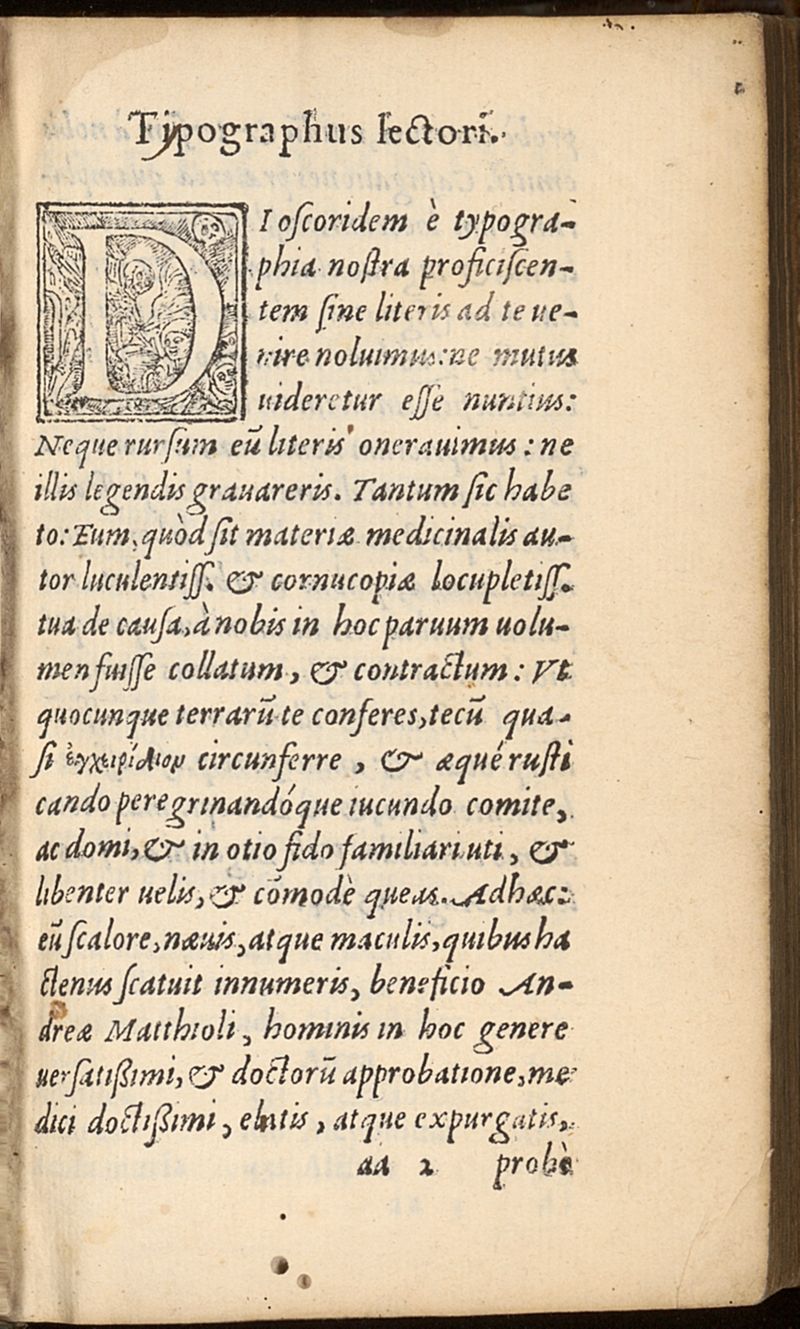 Typographus lectori.
DIoſcoridem è typogra-
phia noſtra proficiſcen-
tem ſine literis ad te ue-
nire noluimus: ne mutus
uideretur eſſe nuntius:
Neque rurſum eũ literis onerauimus: ne
illis legendis grauareris. Tantum ſic habe
to: Eum, quòd ſit materiæ medicinalis au-
tor luculentiſſ. & cornucopiæ locupletiſſ.
tua de cauſa, à nobis in hoc paruum uolu-
men fuiſſe collatum, & contractum: Vt
quocunque terrarũ te conferes, tecũ qua-
ſi ἐγχειρίδιον circunferre, & æquè ruſti
cando peregrinandóque iucundo comite,
ac domi, & in otio fido familiari uti, &
libenter uelis, & cõmodè queas. Adhæc:
eũ ſcalore, næuis, atque maculis, quibus ha
ctenus ſcatuit innumeris, beneficio An-
dreæ Matthioli, hominis in hoc genere
uerſatißimi, & doctorũ approbatione, me
dici doctißimi, elutis, atque expurgatis,
aa 2 probè